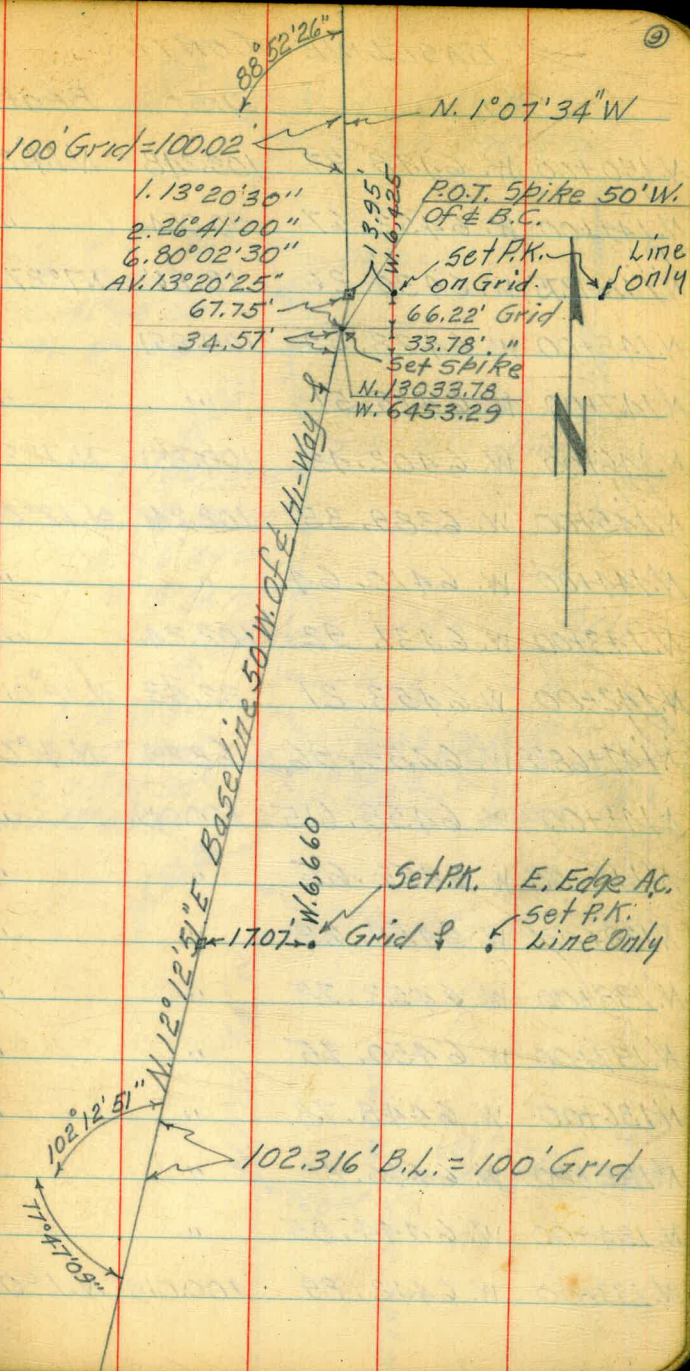 9
88°52'26"
N. 1°07'34"W
100' Grid=100.02'
1. 13°20'30"
2. 26°41'00"
6. 80°02'30"
AV. 13°20'25"
13.95'
W. 6,425
P.O.T. Spike 50'W.
Of ℄ B.C.
Set P.K.
on Grid.
Line
only
67.75'
66.22' Grid
34.57'
33.78' "
Set Spike
N. 13033.78
W. 6453.29
N
N. 12°12'51"E Baseline 50'W. Of ℄ Hi-Way
W. 6,660
Set P.K.
E. Edge A.C.
17.07'
Grid
Set P.K.
Line Only
102°12'51"
102.316' B.L. = 100' Grid
77°47'09"